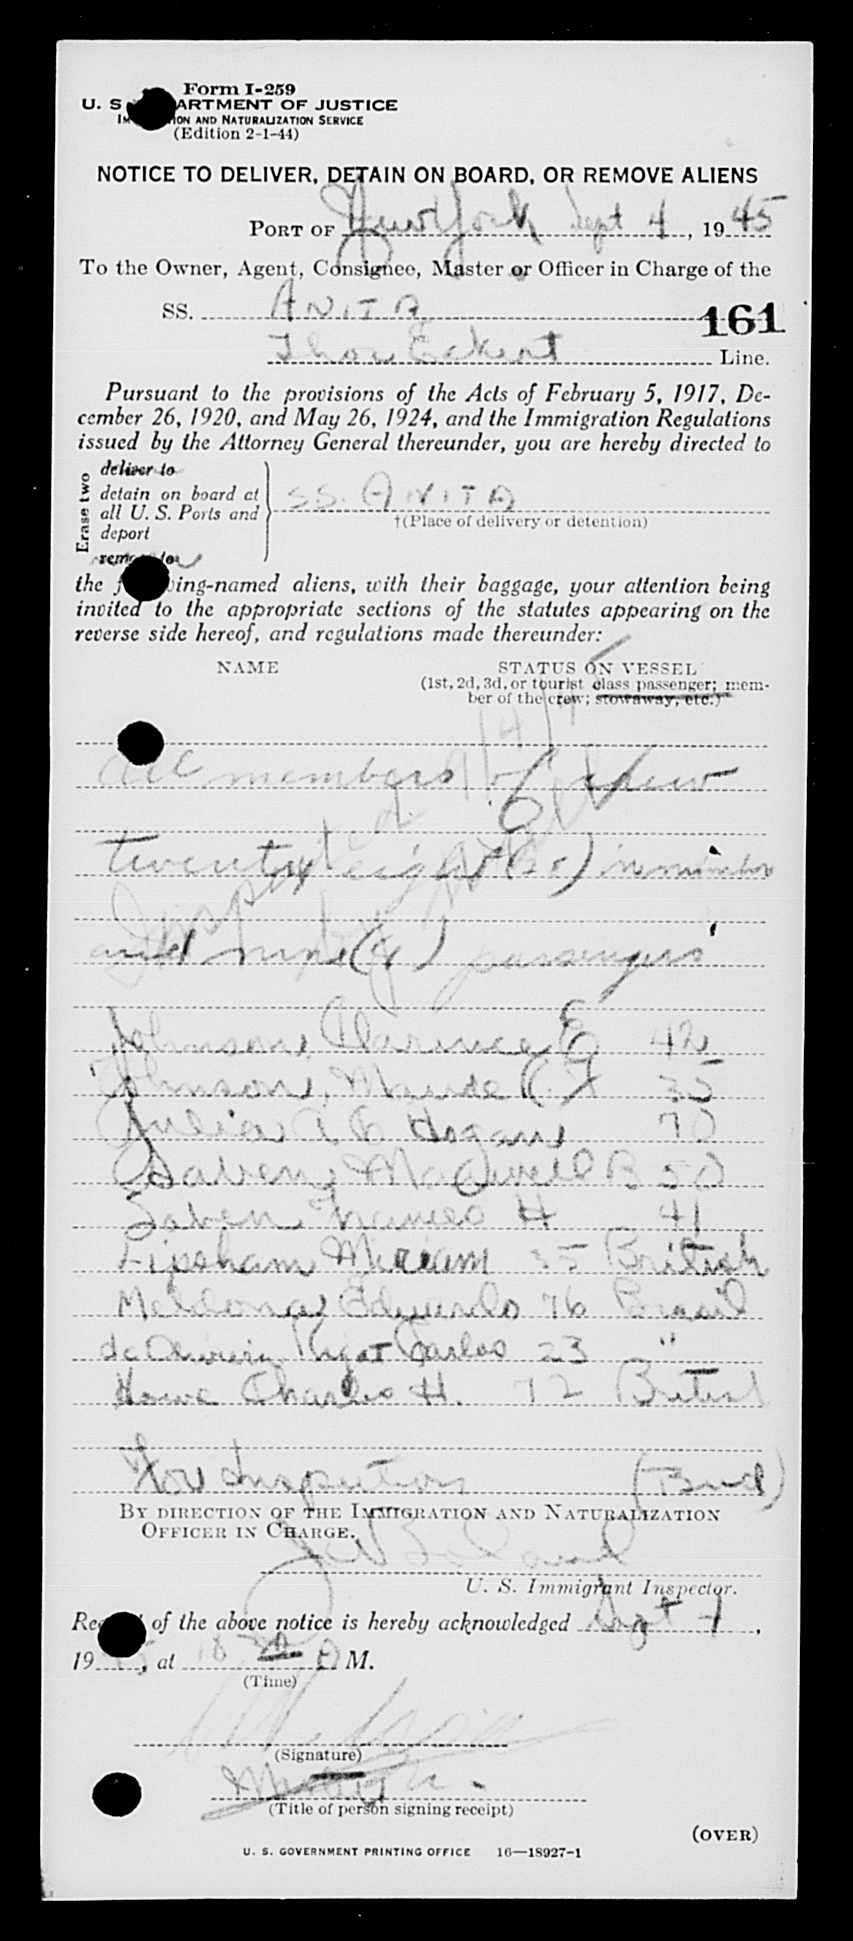 Form I-259
U. S. DEPARTMENT OF JUSTICE
IMMIGRATION AND NATURALIZATION SERVICE
(Edition 2-1-44)
NOTICE TO DELIVER, DETAIN ON BOARD, OR REMOVE ALIENS
PORT OF New York Sept 4, 1945
To the Owner, Agent, Consignee, Master or Officer in Charge of the
SS. ANITA 161
Thor Eckert Line.
Pursuant to the provisions of the Acts of February 5, 1917, De-
cember 26, 1920, and May 26, 1924, and the Immigration Regulations
issued by the Attorney General thereunder, you are hereby directed to
Erase two
deliver to
detain on board at
all U. S. Ports and
deport
remove to
SS. ANITA
†(Place of delivery or detention)
the following-named aliens, with their baggage, your attention being
invited to the appropriate sections of the statutes appearing on the
reverse side hereof, and regulations made thereunder:
NAME STATUS ON VESSEL
(1st, 2d, 3d, or tourist class passenger; mem-
ber of the crew; stowaway, etc.)
all members of crew
twenty eight (28) in number
and nine (9) passengers
Inspected
Johnson, Clarence E 42
Johnson, Maude C. 35
Julia A C Hogan 70
Saben, Maxwell B 50
Saben, Frances H 41
Lipsham, Miriam 35 British
Meldona, Eduardo 76 Brasil
de Carlos 23 "
Howe Charles H. 72 British
For Inspection
BY DIRECTION OF THE IMMIGRATION AND NATURALIZATION
OFFICER IN CHARGE.
U. S. Immigrant Inspector.
Receipt of the above notice is hereby acknowledged Sept 4,
1945, at 10 30 A M.
(Time)
(Signature)
Master
(Title of person signing receipt)
(OVER)
U. S. GOVERNMENT PRINTING OFFICE 16—18927-1